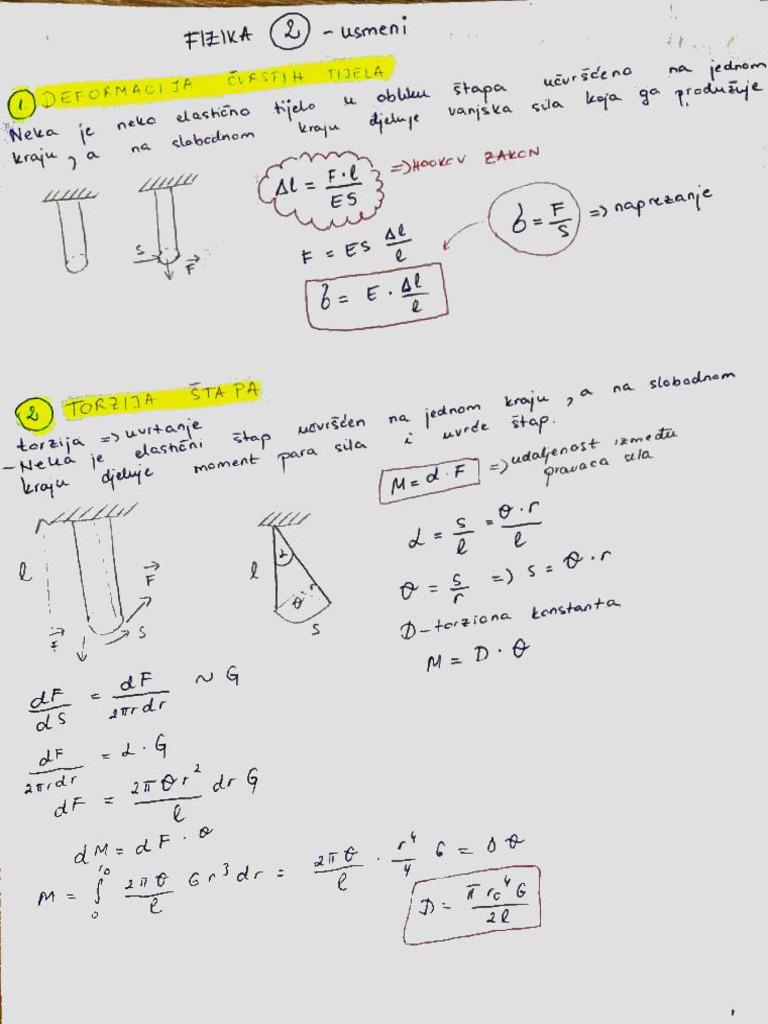 FIZIKA 2 - usmeni
1 DEFORMACIJA ČVRSTIH TIJELA
Neka je neko elastično tijelo u obliku štapa učvršćeno na jednom
kraju, a na slobodnom kraju djeluje vanjska sila koja ga produžuje
Δl = F·l / ES => HOOKOV ZAKON
S
F
F = ES Δl/l
б = F/S => naprezanje
б = E · Δl/l
2 TORZIJA ŠTAPA
torzija => uvrtanje
- Neka je elastični štap učvršćen na jednom kraju, a na slobodnom
kraju djeluje moment para sila i uvrće štap.
M = d · F => udaljenost između
pravaca sila
l
F
F
S
l
α
θ
r
S
α = s/l = θ·r/l
θ = s/r => s = θ·r
D - torziona konstanta
M = D · θ
dF/dS = dF/2πrdr ~ G
dF/2πrdr = α · G
dF = 2πθr²/l dr G
dM = dF · θ
M = ∫₀^r₀ 2πθ/l G r³ dr = 2πθ/l · r⁴/4 G = D θ
D = πr₀⁴G/2l